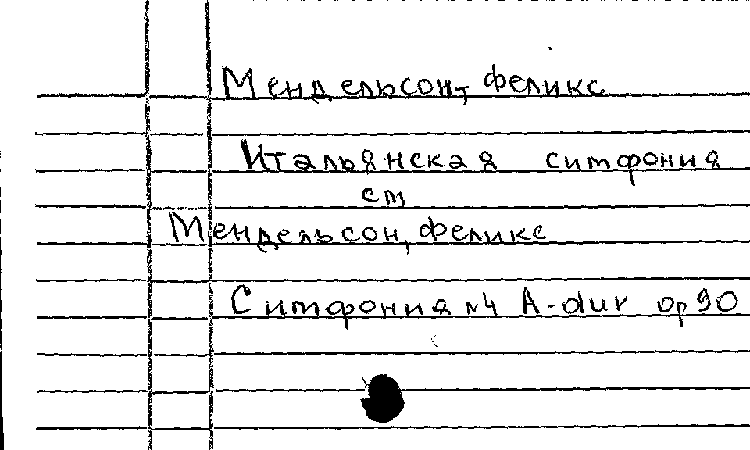 Мендельсон, Феликс
Итальянская симфония
см
Мендельсон, Феликс
Симфония №4 A-dur op 90